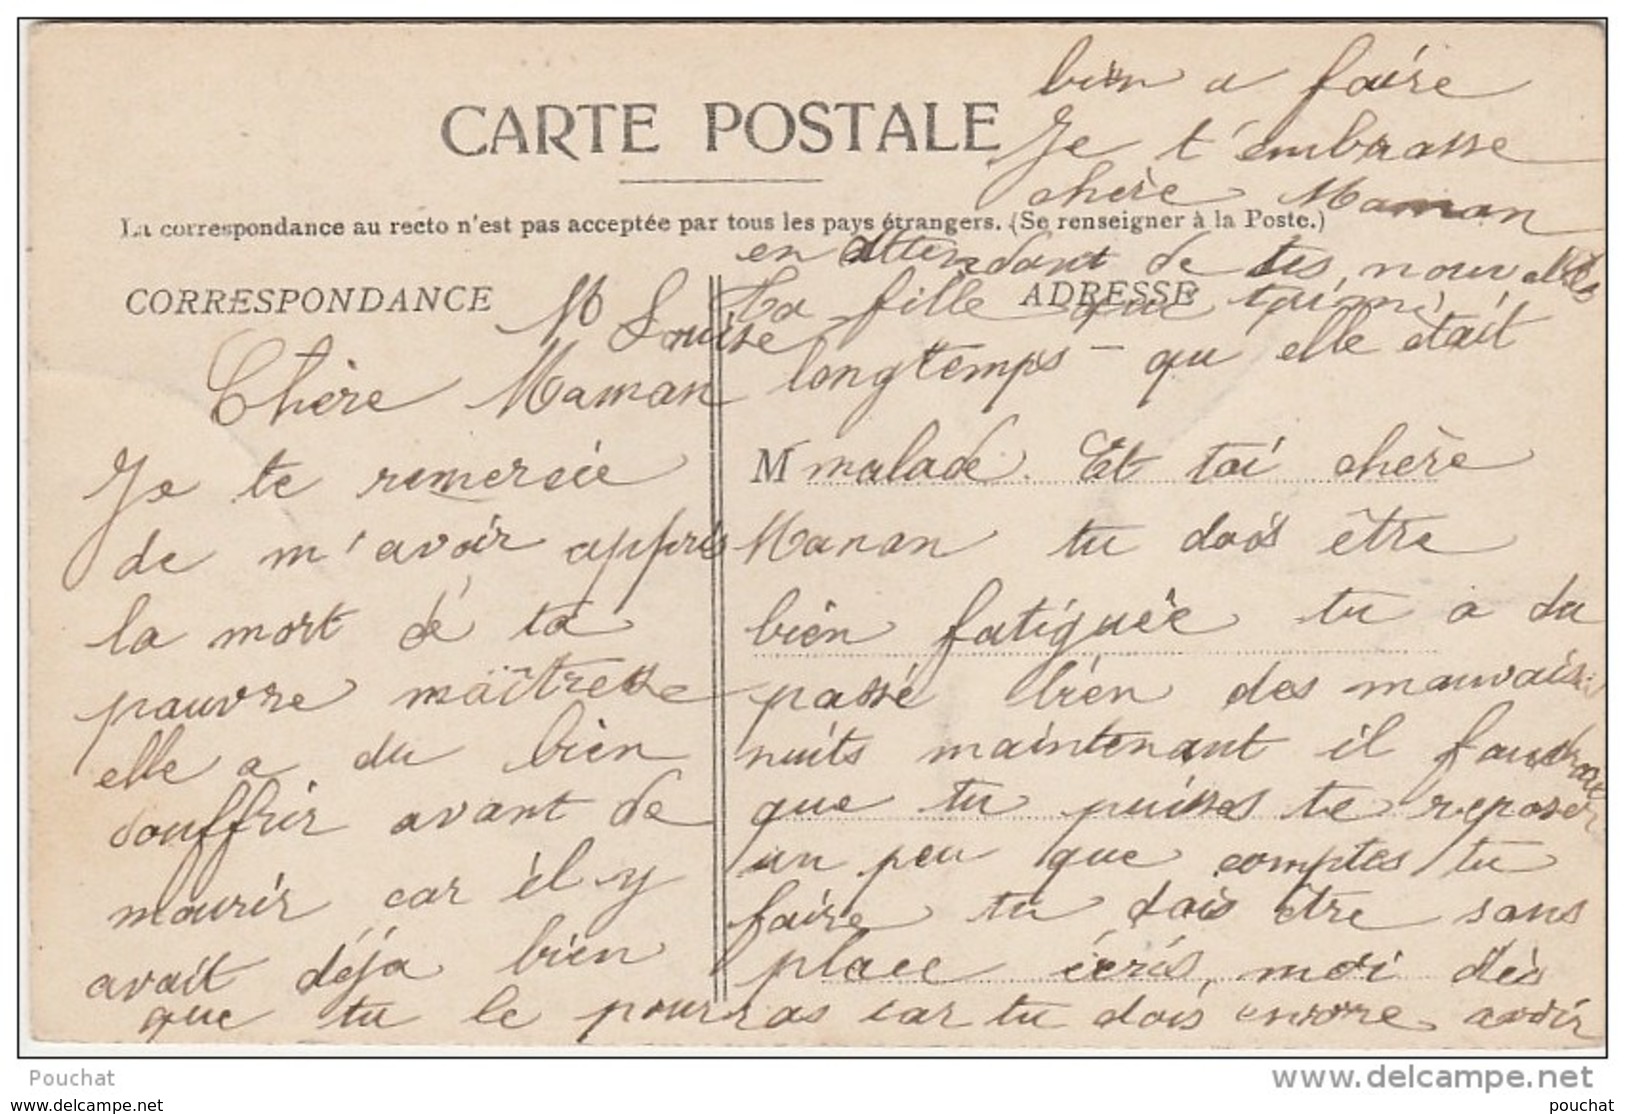 CARTE POSTALE
La correspondance au recto n'est pas acceptée par tous les pays étrangers. (Se renseigner à la Poste.)
CORRESPONDANCE
ADRESSE
Chère Maman
Je te remercie
de m'avoir appris
la mort de ta
pauvre maîtresse
elle a du bien
souffrir avant de
mourir car il y
avait déjà bien
longtemps - qu elle était
M malade. Et toi chère
Maman tu dois être
bien fatiguée tu a du
passé bien des mauvaises
nuits maintenant il faudrait
que tu puisses te reposer
un peu que comptes tu
faire tu dois être sans
place écris, moi dès
que tu le pourras car tu dois encore avoir
bien a faire
Je t'embrasse
chère Maman
en attendant de tes nouvelles
Ta fille qui t'aime
M Louise
Pouchat
www.delcampe.net
pouchat
pouchat